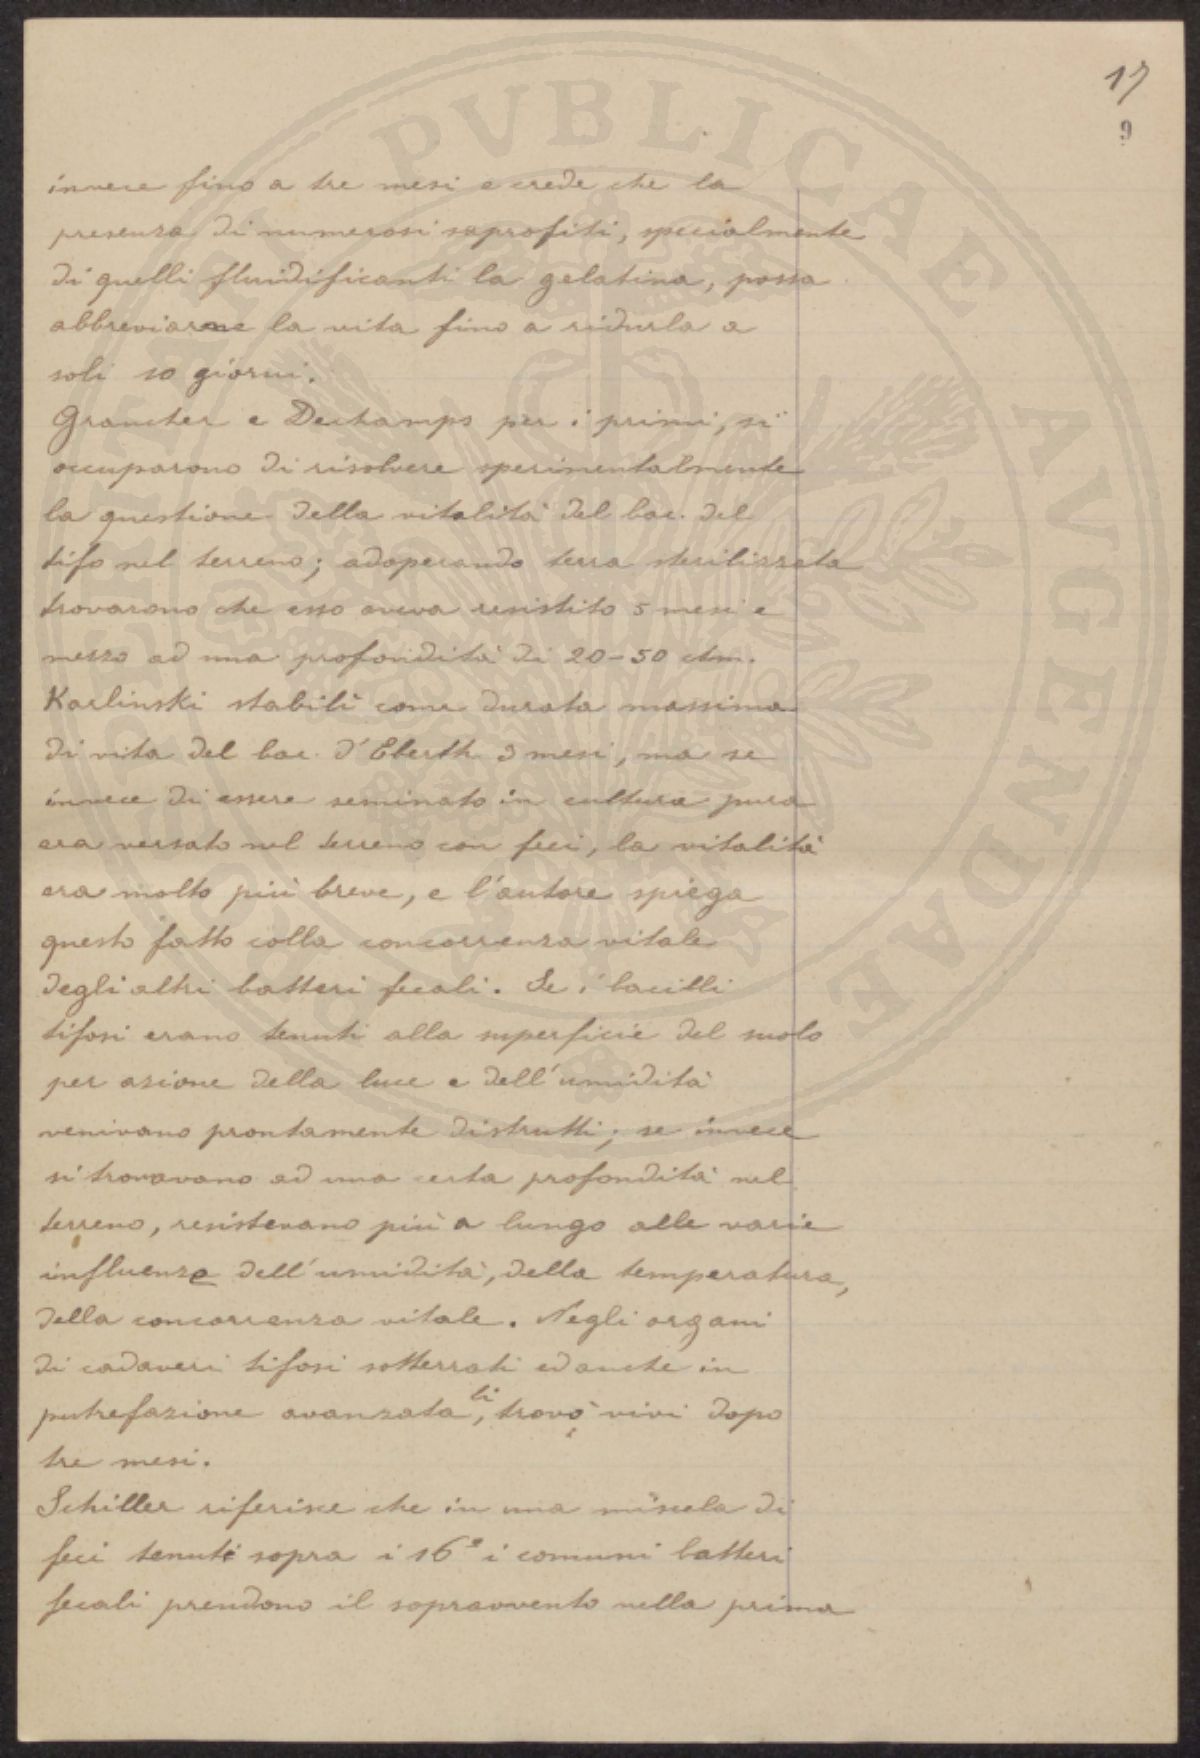 17
9
invece fino a tre mesi e crede che la
presenza di numerosi saprofiti, specialmente
di quelli fluidificanti la gelatina, possa
abbreviarne la vita fino a ridurla a
soli 10 giorni.
Grancher e Dechamps per i primi, si
occuparono di risolvere sperimentalmente
la questione della vitalità del bac. del
tifo nel terreno; adoperando terra sterilizzata
trovarono che esso aveva resistito 5 mesi e
mezzo ad una profondità di 20-50 ctm.
Karlinski stabilì come durata massima
di vita del bac. d'Eberth 3 mesi, ma se
invece di essere seminato in cultura pura
era versato nel terreno con feci, la vitalità
era molto più breve, e l'autore spiega
questo fatto colla concorrenza vitale
degli altri batteri fecali. Se i bacilli
tifosi erano tenuti alla superficie del suolo
per azione della luce e dell'umidità
venivano prontamente distrutti; se invece
si trovavano ad una certa profondità nel
terreno, resistevano più a lungo alle varie
influenze dell'umidità, della temperatura,
della concorrenza vitale. Negli organi
di cadaveri tifosi sotterrati ed anche in
putrefazione avanzata, li trovò vivi dopo
tre mesi.
Schiller riferisce che in una miscela di
feci tenute sopra i 16° i comuni batteri
fecali prendono il sopravvento nella prima
PVBLICAE AVGENDAE